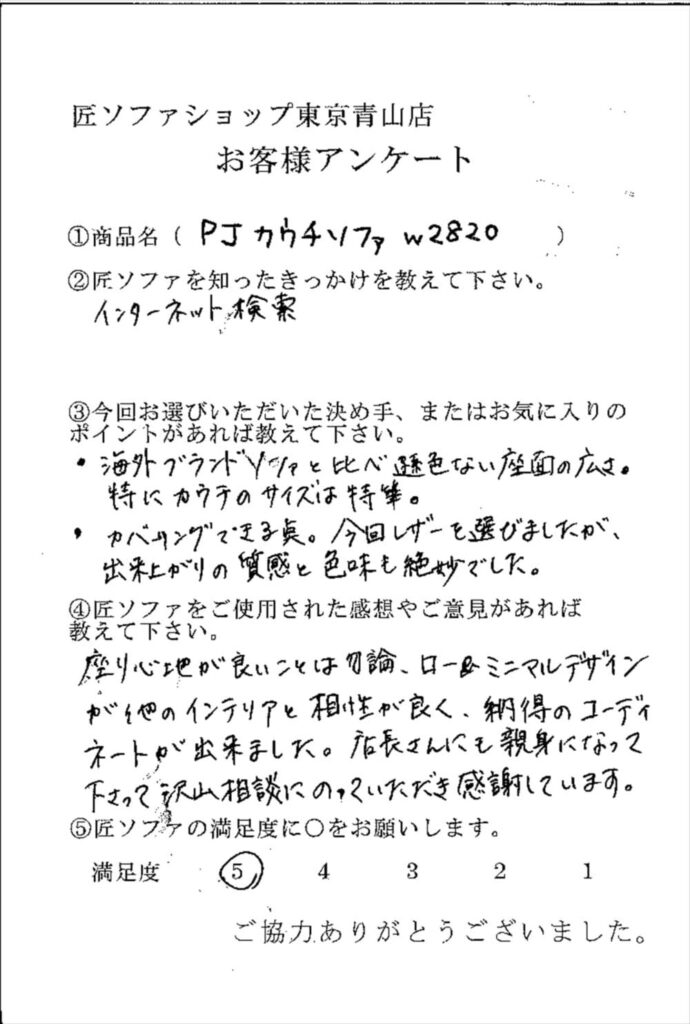 匠ソファショップ東京青山店
お客様アンケート
①商品名（ PJカウチソファ w2820 ）
②匠ソファを知ったきっかけを教えて下さい。
インターネット検索
③今回お選びいただいた決め手、またはお気に入りの
ポイントがあれば教えて下さい。
・海外ブランドソファと比べ遜色ない座面の広さ。
特にカウチのサイズは特筆。
・カバーリングできる点。今回レザーを選びましたが、
出来上がりの質感と色味も絶妙でした。
④匠ソファをご使用された感想やご意見があれば
教えて下さい。
座り心地が良いことは勿論、ロー&ミニマルデザイン
が他のインテリアと相性が良く、納得のコーディ
ネートが出来ました。店長さんにも親身になって
下さって沢山相談にのっていただき感謝しています。
⑤匠ソファの満足度に〇をお願いします。
満足度 5 4 3 2 1
ご協力ありがとうございました。